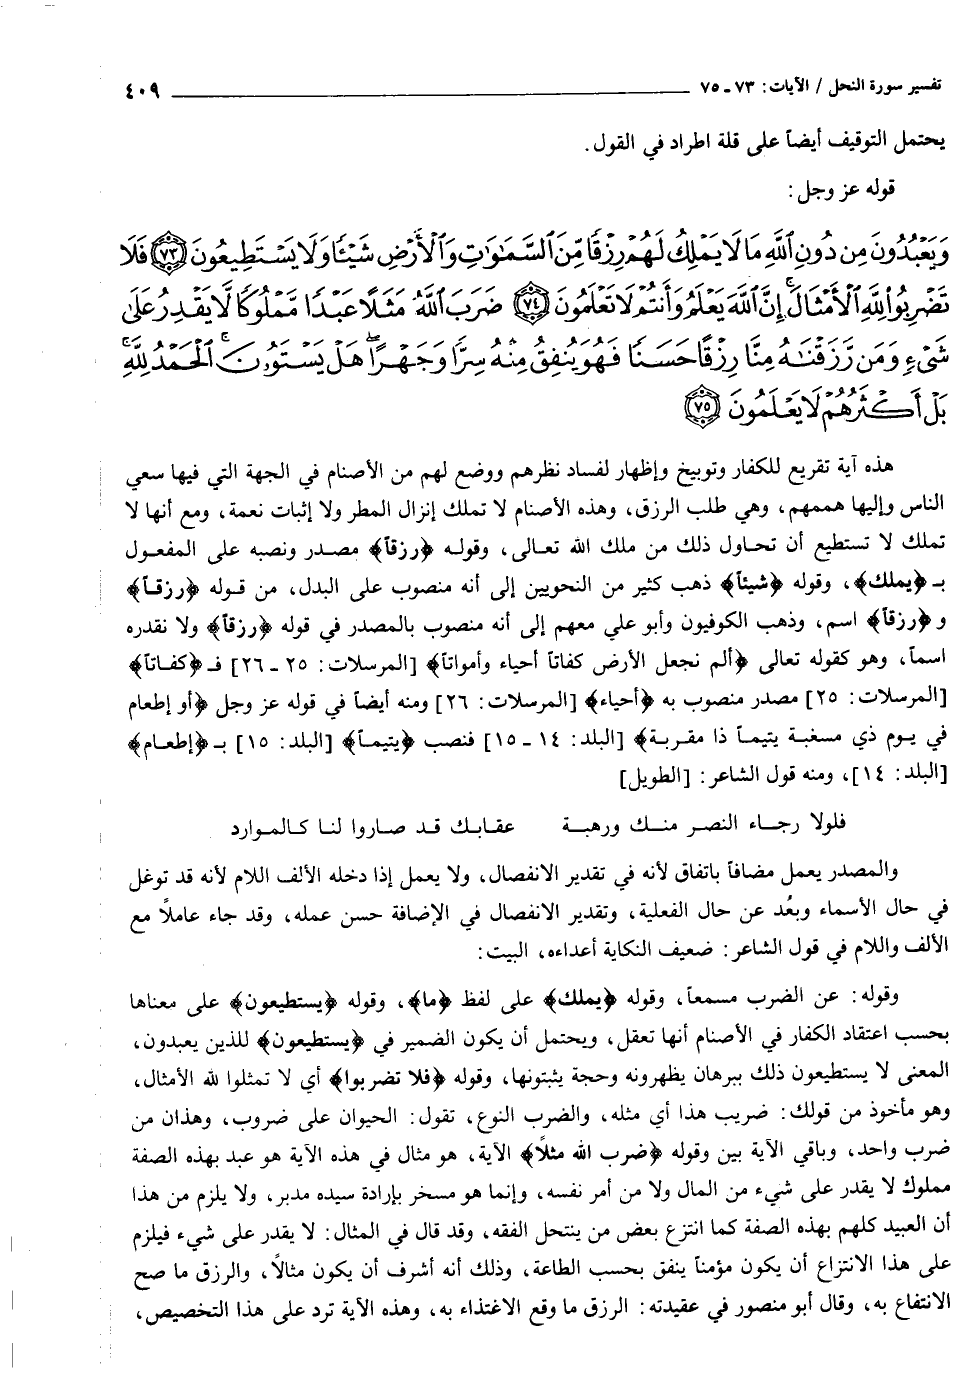 تفسير سورة النحل / الآيات: ٧٣ ـ ٧٥ ٤٠٩
يحتمل التوقيف أيضاً على قلة اطراد في القول.
قوله عز وجل:
وَيَعْبُدُونَ مِن دُونِ ٱللَّهِ مَا لَا يَمْلِكُ لَهُمْ رِزْقًا مِّنَ ٱلسَّمَٰوَٰتِ وَٱلْأَرْضِ شَيْـًٔا وَلَا يَسْتَطِيعُونَ ٧٣ فَلَا
تَضْرِبُوا۟ لِلَّهِ ٱلْأَمْثَالَ ۚ إِنَّ ٱللَّهَ يَعْلَمُ وَأَنتُمْ لَا تَعْلَمُونَ ٧٤ ضَرَبَ ٱللَّهُ مَثَلًا عَبْدًا مَّمْلُوكًا لَّا يَقْدِرُ عَلَىٰ
شَىْءٍ وَمَن رَّزَقْنَٰهُ مِنَّا رِزْقًا حَسَنًا فَهُوَ يُنفِقُ مِنْهُ سِرًّا وَجَهْرًا ۖ هَلْ يَسْتَوُۥنَ ۚ ٱلْحَمْدُ لِلَّهِ ۚ
بَلْ أَكْثَرُهُمْ لَا يَعْلَمُونَ ٧٥
هذه آية تقريع للكفار وتوبيخ وإظهار لفساد نظرهم ووضع لهم من الأصنام في الجهة التي فيها سعي
الناس وإليها هممهم، وهي طلب الرزق، وهذه الأصنام لا تملك إنزال المطر ولا إثبات نعمة، ومع أنها لا
تملك لا تستطيع أن تحاول ذلك من ملك الله تعالى، وقوله ﴿رزقاً﴾ مصدر ونصبه على المفعول
بـ ﴿يملك﴾، وقوله ﴿شيئاً﴾ ذهب كثير من النحويين إلى أنه منصوب على البدل، من قوله ﴿رزقاً﴾
و ﴿رزقاً﴾ اسم، وذهب الكوفيون وأبو علي معهم إلى أنه منصوب بالمصدر في قوله ﴿رزقاً﴾ ولا نقدره
اسماً، وهو كقوله تعالى ﴿ألم نجعل الأرض كفاتاً أحياء وأمواتاً﴾ [المرسلات: ٢٥ ـ ٢٦] فـ ﴿كفاتاً﴾
[المرسلات: ٢٥] مصدر منصوب به ﴿أحياء﴾ [المرسلات: ٢٦] ومنه أيضاً في قوله عز وجل ﴿أو إطعام
في يوم ذي مسغبة يتيماً ذا مقربة﴾ [البلد: ١٤ ـ ١٥] فنصب ﴿يتيماً﴾ [البلد: ١٥] بـ ﴿إطعام﴾
[البلد: ١٤]، ومنه قول الشاعر: [الطويل]
فلولا رجاء النصر منك ورهبة عقابك قد صاروا لنا كالموارد
والمصدر يعمل مضافاً باتفاق لأنه في تقدير الانفصال، ولا يعمل إذا دخله الألف اللام لأنه قد توغل
في حال الأسماء وبعُد عن حال الفعلية، وتقدير الانفصال في الإضافة حسن عمله، وقد جاء عاملاً مع
الألف واللام في قول الشاعر: ضعيف النكاية أعداءه، البيت:
وقوله: عن الضرب مسمعاً، وقوله ﴿يملك﴾ على لفظ ﴿ما﴾، وقوله ﴿يستطيعون﴾ على معناها
بحسب اعتقاد الكفار في الأصنام أنها تعقل، ويحتمل أن يكون الضمير في ﴿يستطيعون﴾ للذين يعبدون،
المعنى لا يستطيعون ذلك ببرهان يظهرونه وحجة يثبتونها، وقوله ﴿فلا تضربوا﴾ أي لا تمثلوا لله الأمثال،
وهو مأخوذ من قولك: ضريب هذا أي مثله، والضرب النوع، تقول: الحيوان على ضروب، وهذان من
ضرب واحد، وباقي الآية بين وقوله ﴿ضرب الله مثلاً﴾ الآية، هو مثال في هذه الآية هو عبد بهذه الصفة
مملوك لا يقدر على شيء من المال ولا من أمر نفسه، وإنما هو مسخر بإرادة سيده مدبر، ولا يلزم من هذا
أن العبيد كلهم بهذه الصفة كما انتزع بعض من ينتحل الفقه، وقد قال في المثال: لا يقدر على شيء فيلزم
على هذا الانتزاع أن يكون مؤمناً ينفق بحسب الطاعة، وذلك أنه أشرف أن يكون مثالاً، والرزق ما صح
الانتفاع به، وقال أبو منصور في عقيدته: الرزق ما وقع الاغتذاء به، وهذه الآية ترد على هذا التخصيص،